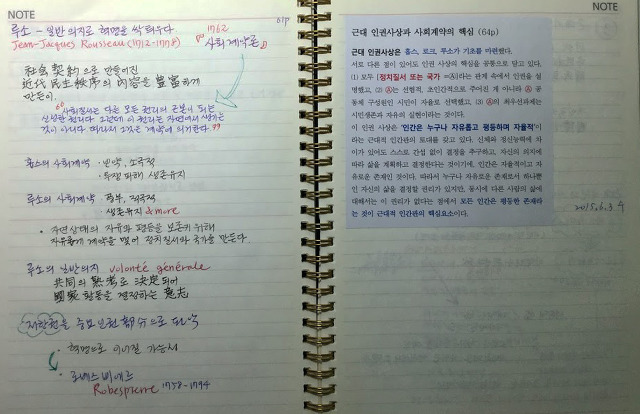 NOTE
61p
루소 - 일반 의지로 혁명을 싹 틔우다
Jean-Jacques Rousseau (1712-1778)
1762
『사회계약론』
社會契約으로 만들어진
近代 民主秩序의 內容을 豊富하게
만든이.
"사회질서는 다른 모든 권리의 근본이 되는
신성한 권리다. 그런데 이 권리는 자연에서 생기는
것이 아니다. 따라서 그것은 계약에 의거한다."
홉스의 사회계약 · 빈약, 소극적
· 투쟁 피해 생존유지
루소의 사회계약 · 풍부, 적극적
· 생존유지 & more
· 자연상태의 자유와 평등을 보존키 위해
자유롭게 계약을 맺어 정치질서와 국가를 만든다
루소의 일반의지 volonté générale
共同의 熟考로 決定되어
國家 활동을 결정하는 意志
저항권을 중요
· 혁명으로 이어질 가능성
· 로베스삐에르
Robespierre 1758-1794
NOTE
근대 인권사상과 사회계약의 핵심 (64p)
근대 인권사상은 홉스, 로크, 루소가 기초를 마련했다.
서로 다른 점이 있어도 인권 사상의 핵심을 공통으로 담고 있다.
(1) 모두 (정치질서 또는 국가 =Ⓐ)라는 관계 속에서 인권을 설
명했고, (2) Ⓐ는 선험적, 초인간적으로 주어진 게 아니라 Ⓐ 공
동체 구성원인 시민이 자율로 선택했고, (3) Ⓐ의 최우선과제는
시민생존과 자유의 실현이라고 했다.
이 인권 사상은 '인간은 누구나 자유롭고 평등하며 자율적'이
라는 근대적 인간관이 토대를 갖고 있다. 신체와 정신능력에 차
이가 있어도 스스로 간섭 없이 결정을 추구하고, 자신의 의지에
따라 삶을 계획하고 결정한다는 것이기에, 인간은 자율적이고 자
유로운 존재인 것이다. 따라서 누구나 자유로운 존재로서 하나뿐
인 자신의 삶을 결정할 권리가 있지만, 동시에 다른 사람의 삶에
대해서는 이 권리가 없다는 점에서 모든 인간은 평등한 존재라
는 것이 근대적 인간관의 핵심요소이다.
2015.6.3.